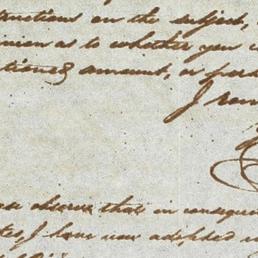 tructions on the subject,
inion as to whether you
tioned amount, or
I
observe that in consequ
I have now adopted